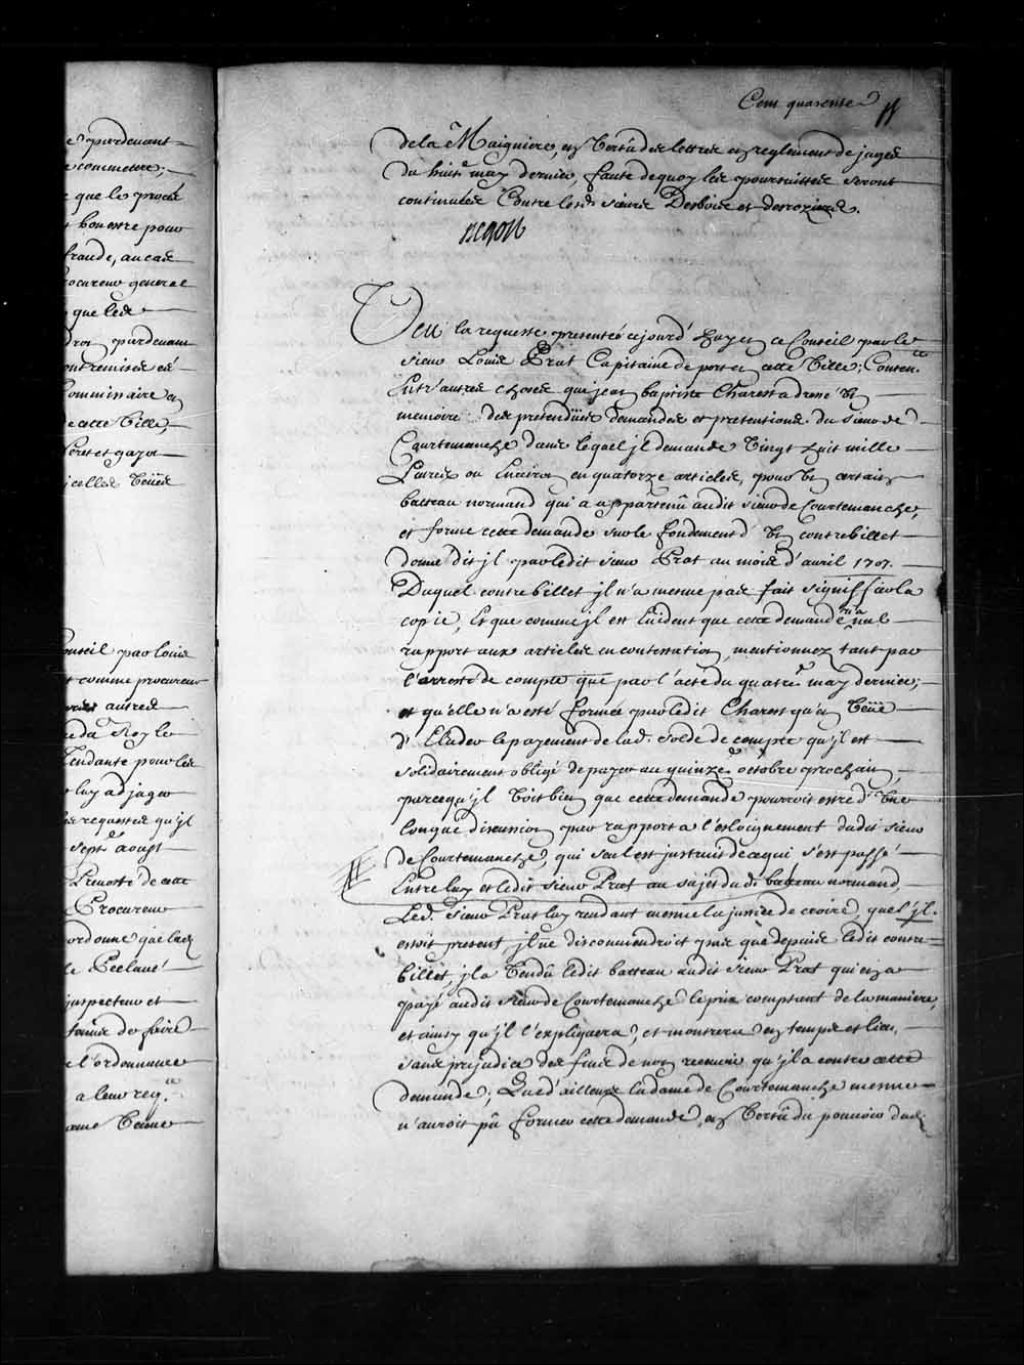 e pardevant
e commettre;
e que le procés
t honneste pour
fraude, au cas
rocureur general
que lesd
pardevant
ommissaire en
cette Ville,
icelles Veües
Conseil par Louis
t comme procureur
autres
du Roy le
tendante pour les
luy adjuger
requestes qu'jl
sept. aoust
Prevosté de cette
Procureur
ordonné que led
le Reclamé
jnspecteur et
de faire
e l'ordonnance
a leur req.te
Veüe
Cent quarente
de la Maigniere, en Vertu des lettres en reglement de juges
du huit.e may dernier, faute de quoy les poursuittes seront
continuées Contre lesd. sieurs Desboise et desroziers.
Begon
Veu la requeste presentée cejourd'huy en ce Conseil par le
sieur Louis Prat Capitaine de port en cette Ville; Conten.te
Entr'autres choses que jean baptiste Charest a donné Vn
memoire des pretendües demandes et pretentions du sieur de
Courtemanche dans lequel jl demande Vingt huit mille
Livres ou Environ en quatorze articles, pour Vn certain
batteau normand qui a appartenû audit sieur de Courtemanche,
et forme cette demande sur le fondement d'Vn contrebillet
donné dit jl par ledit sieur Prat au mois d'avril 1707.
Duquel contrebillet jl n'a mesme pas fait signiffier la
copie, Et que comme jl est Evident que cette demande n'a nul
rapport aux articles en contestation, mentionnez tant par
l'arresté de compte que par l'acte du quatre may dernier;
et qu'elle n'a esté formée par ledit Charest qu'en Veüe
d'Eluder le payement de lad. solde de compte qu'jl est
solidairement obligé de payer au quinze octobre prochain,
parcequ'jl Voit bien que cette demande pourroit estre d'Vne
longue discussion par rapport a l'esloignement dudit sieur
de Courtemanche, qui seul est jnstruit de ce qui s'est passé
Entre luy et ledit sieur Prat au sujet dudi. batteau normand,
Led. sieur Prat luy rendant mesme la justice de croire, que s'jl
estoit present, jl ne disconviendroit pas que depuis ledit contre-
billet, jl a Vendû ledit batteau audit sieur Prat qui en a
payé audit sieur de Courtemanche le prix comptant de la maniere,
et ainsy qu'jl l'expliquera, et montrera en temps et lieu,
sans prejudice des fins de non recevoir qu'jl a contre cette
demande; Que d'ailleurs la dame de Courtemanche mesme
n'auroit pû former cette demande, en Vertû du pouvoir dud.